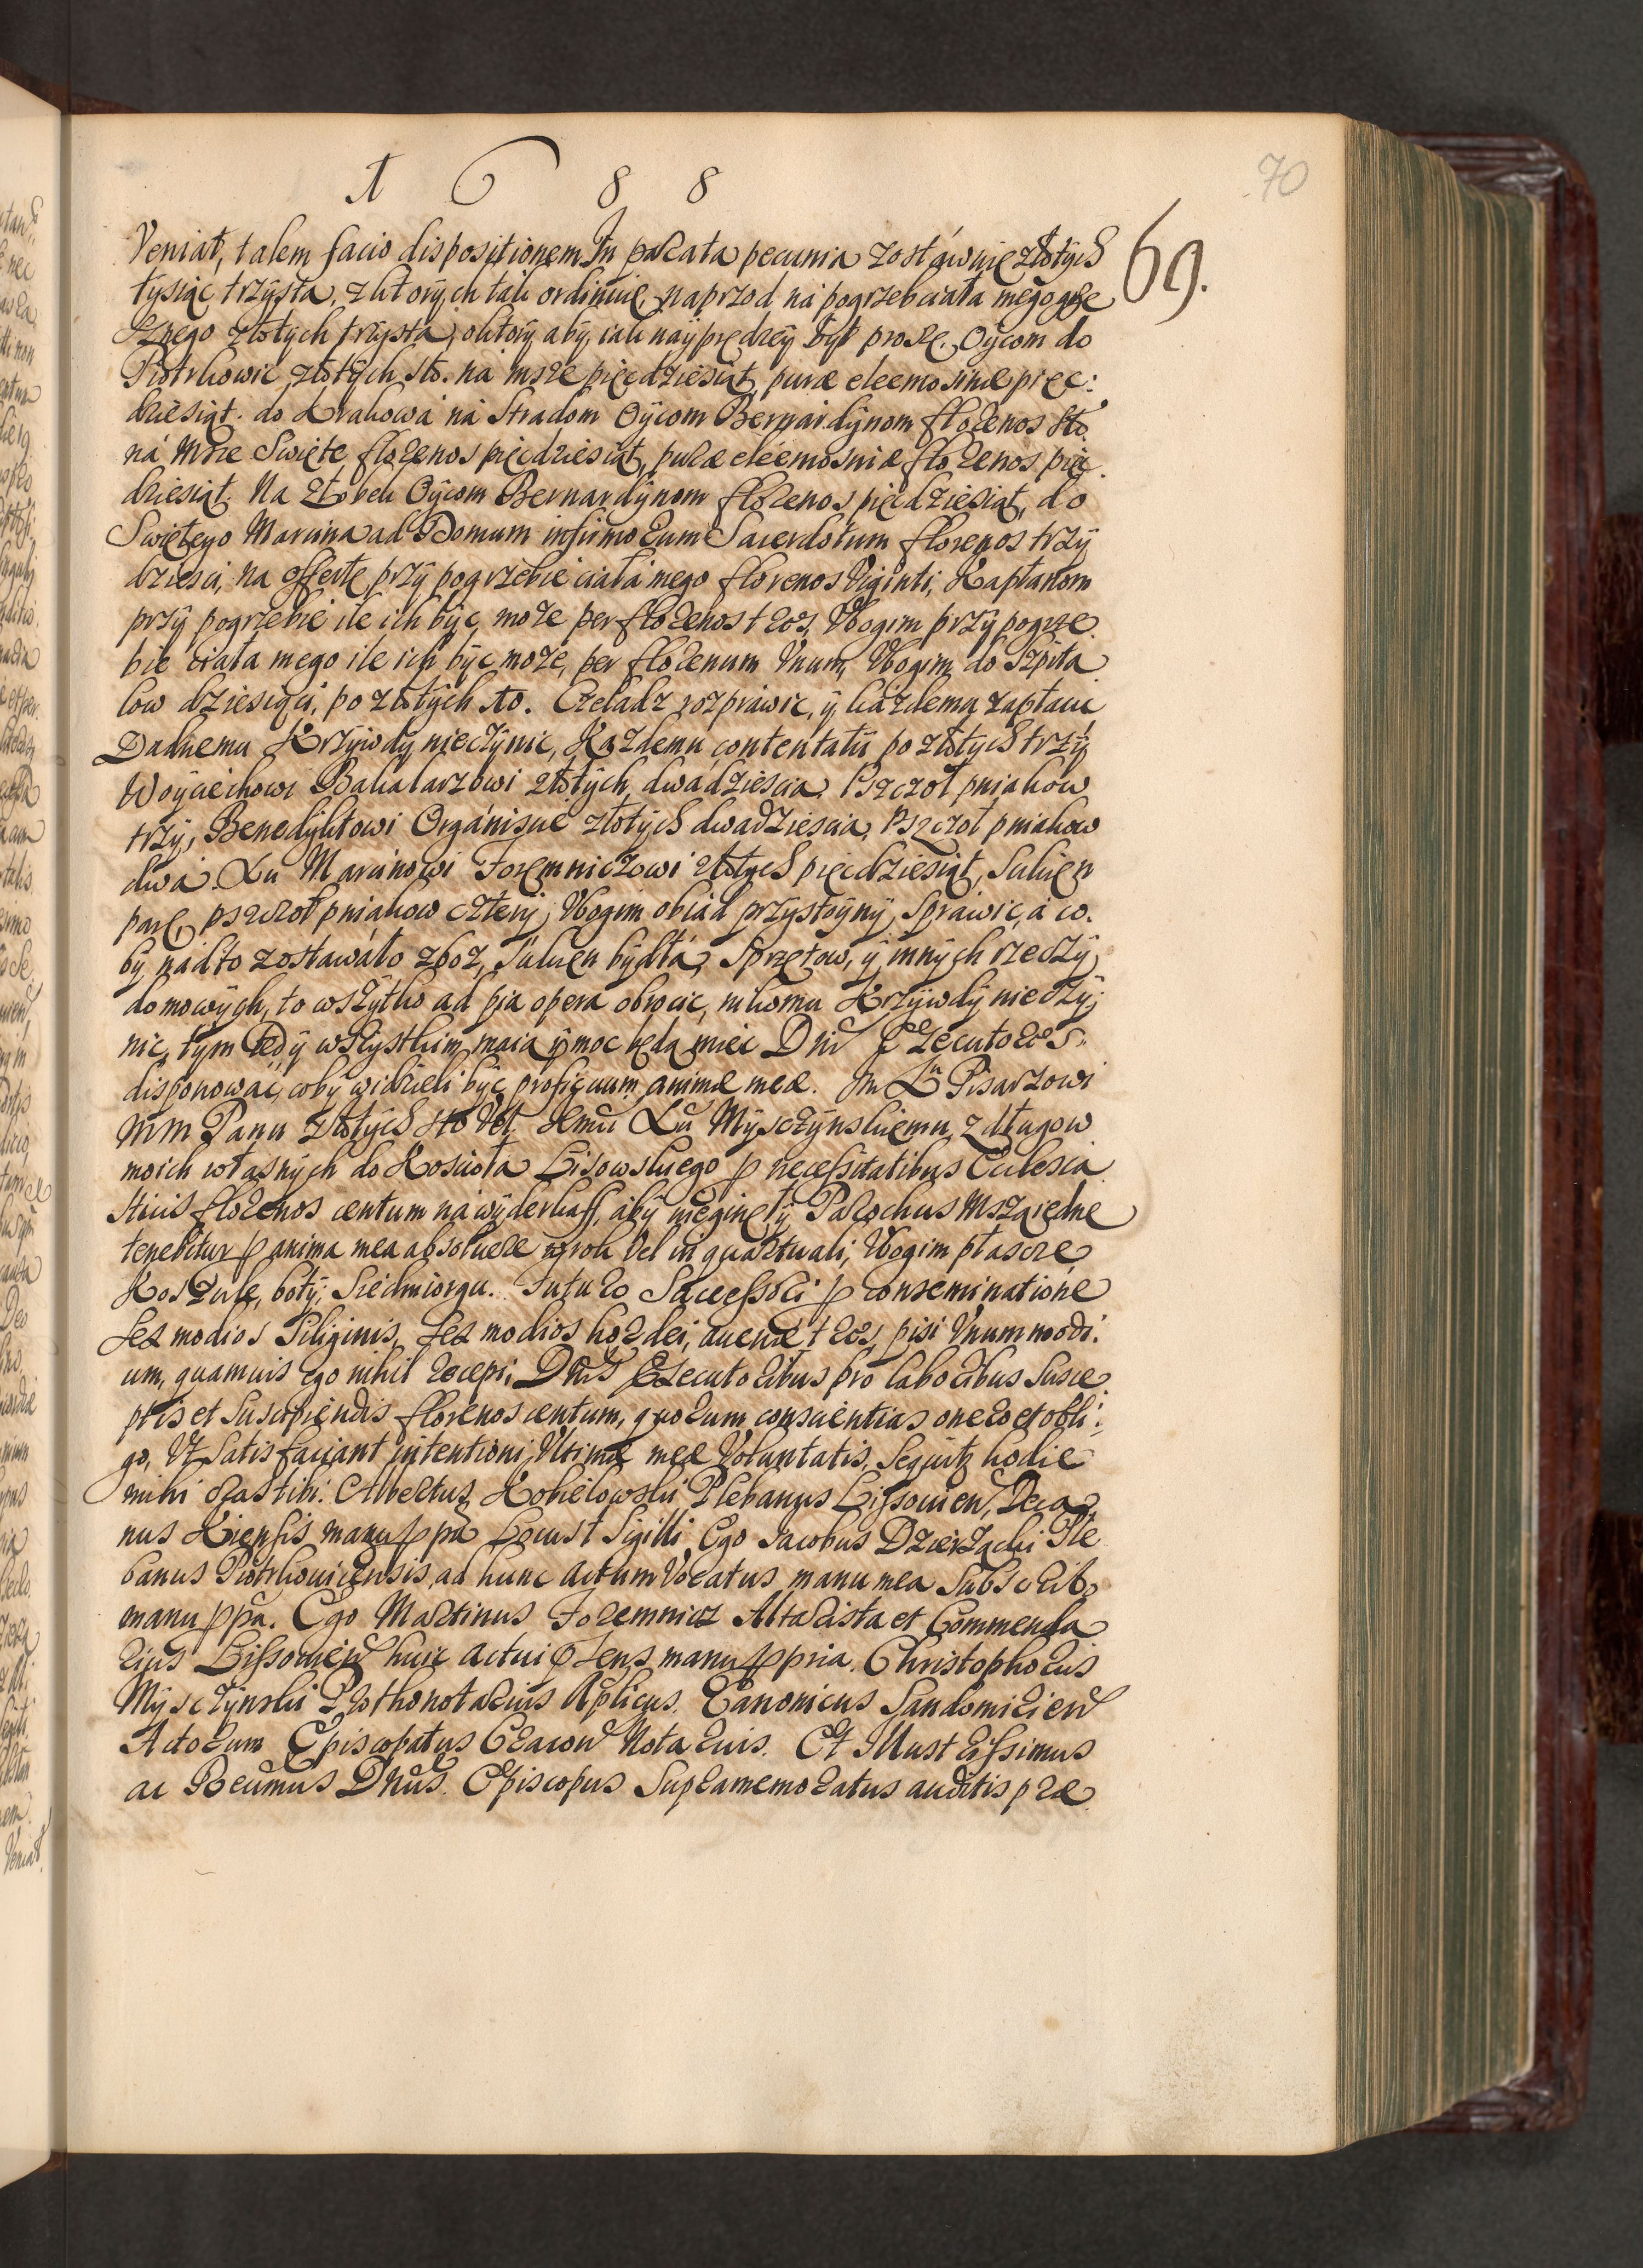 1 6 8 8
70
69.
Veniat, talem facio dispositionem. In parata pecunia zostáwuię złotych
tysiąc trzysta, z ktorych tak ordinuię, naprzod ná pogrzeb ciała mego grze
sznego złotych trzysta, o ktory aby iak náyprędzey był proszę. Oycom do
Piotrkowic złotych sto. ná msze pięcdziesiąt, puræ eleemosinæ pięc:
dziesiąt. do Krakowá ná Stradom Oycom Bernardynom florenos sto.
ná Msze Swięte florenos pięcdziesiąt, puræ eleemosniæ florenos pięc
dziesiąt. Na Żłobek Oycom Bernardynom florenos pięcdziesiąt, do
Swiętego Marcina ad Domum infirmorum Sacerdotum florenos trzy
dziesci, na offertę przy pogrzebie ciałá mego florenos Viginti, Kapłanom
przy pogrzebie ile ich byc może per florenos tres, Vbogim przy pogrze
bie ciała mego ile ich byc może, per florenum Vnum, Vbogim do szpita
low dziesiąci, po złotych sto. Czeladz rozprawic, y każdemu zapłacic
Dadnemu Krzywdy nieczynic, Kazdemu contentatij po złotych trzy
Woyciechowi Bakałarzowi złotych dwádziescia. Pszczoł pniakow
trzy, Benedyktowi Orgániscie złotych dwadziescia, Pszczoł pniakow
dwá. Xu Marcinowi Foremniczowi złotych pięcdziesiąt, Sukien
parę, pszczoł pniakow cztery, Vbogim obiad przystoyny sprawic, á co
by nádto zostawáło zboz, Sukien bydłá, Sprzętow, y innych rzeczy
domowych, to wszytko ad pia opera obrocic, nikomu Krzywdy nieczy:
nic, tym tedy wszystkim maią y moc będą miec Dni Executores
disponowác, coby widzieli byc proficuum animæ meæ. Im Xu Pisarzowi
MM Panu złotych sto Vel. Xu Mysczynskiemu z długow
moich własnych do Koscioła Lisowskiego p necessitatibus Ecclesia
sticis florenos centum ná wyderkaff, aby nieginęły Parochus Mszą iednę
tenebitur p anima mea absoluere w rok Vel in quartuali, Vbogim płaszcze
Koszule, boty, Siedmiorgu. Futuro Successori p conseminatione
sex modios Siliginis, sex modios hordei, auenæ tres, pisi Vnum modi:
um, quamuis ego nihil recepi, Dnis Executoribus pro laboribus susce
ptis et suscipiendis florenos centum, quorum conscientias onero et obli:
go, Vt satisfaciant intentioni Vltimæ meæ Voluntatis, Sequitur hodie
mihi cras tibi. Albertus Kobielowski Plebanus Lissouien, Deca
nus Kiensis manu ppa Locus t Sigilli Ego Jacobus Dzierzacki Ple
banus Piotrkouicensis, ad hunc actum Vocatus manu mea subscribo
manu ppa. Ego Martinus Foremnicz Altarista et Commenda
rius Lissouien huic actui præsens manu ppria. Christophorus
Mysczynski Prothonotarius Aplicus. Canonicus Sandomirien
Actorum Episcopatus Cracou Notarius. Et Illustrissimus
ac Reūmus Dnus. Episcopus Supramemoratus auditis præ